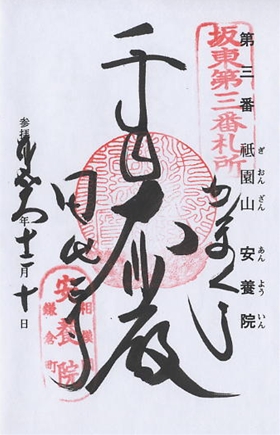 坂東第三番札所
第三番 祇園山 安養院
ぎおんざん あんよういん
かまくら
千手
田代寺
参拝 年 月十日
安養院
鎌倉町